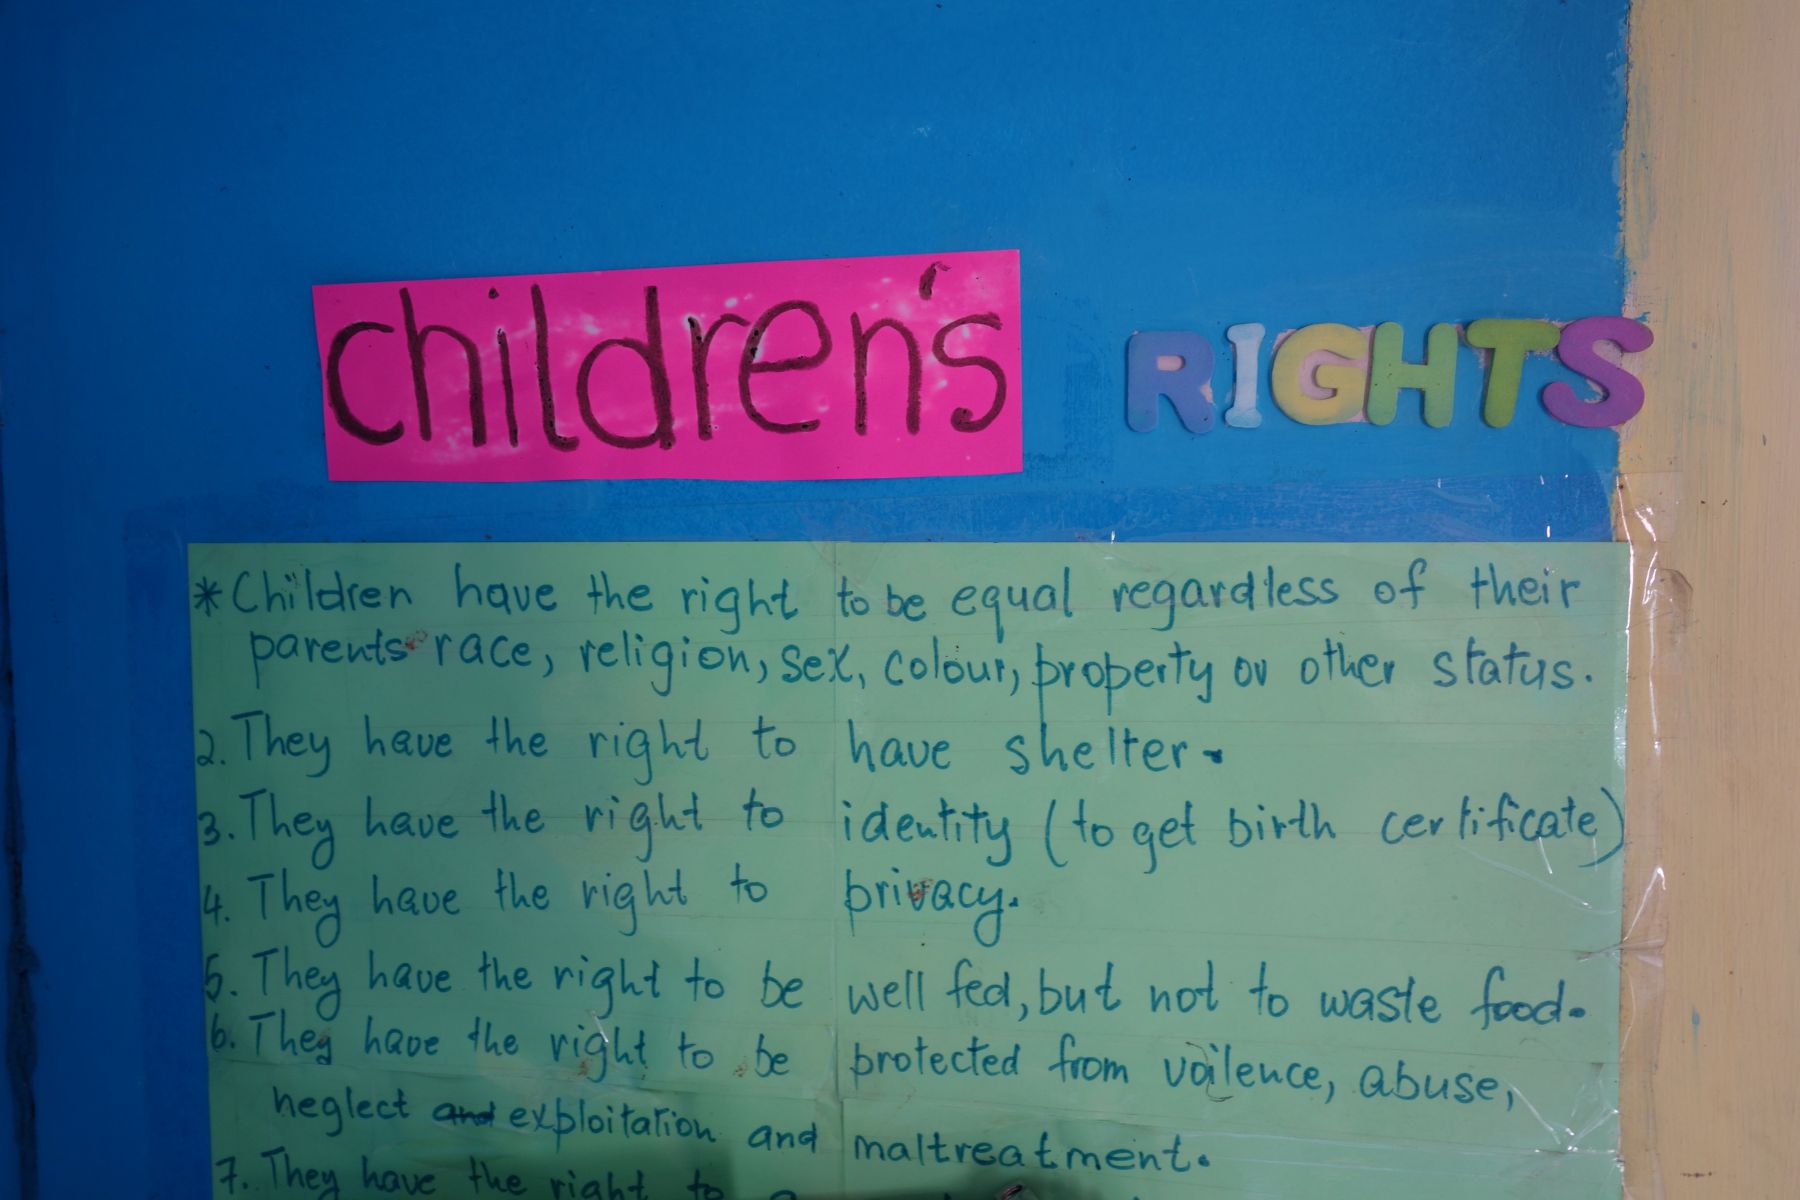 children's RIGHTS
* Children have the right to be equal regardless of their
parents race, religion, sex, colour, property or other status.
2. They have the right to have shelter.
3. They have the right to identity (to get birth certificate)
4. They have the right to privacy.
5. They have the right to be well fed, but not to waste food.
6. They have the right to be protected from voilence, abuse,
neglect and exploitation and maltreatment.
7. They have the right to